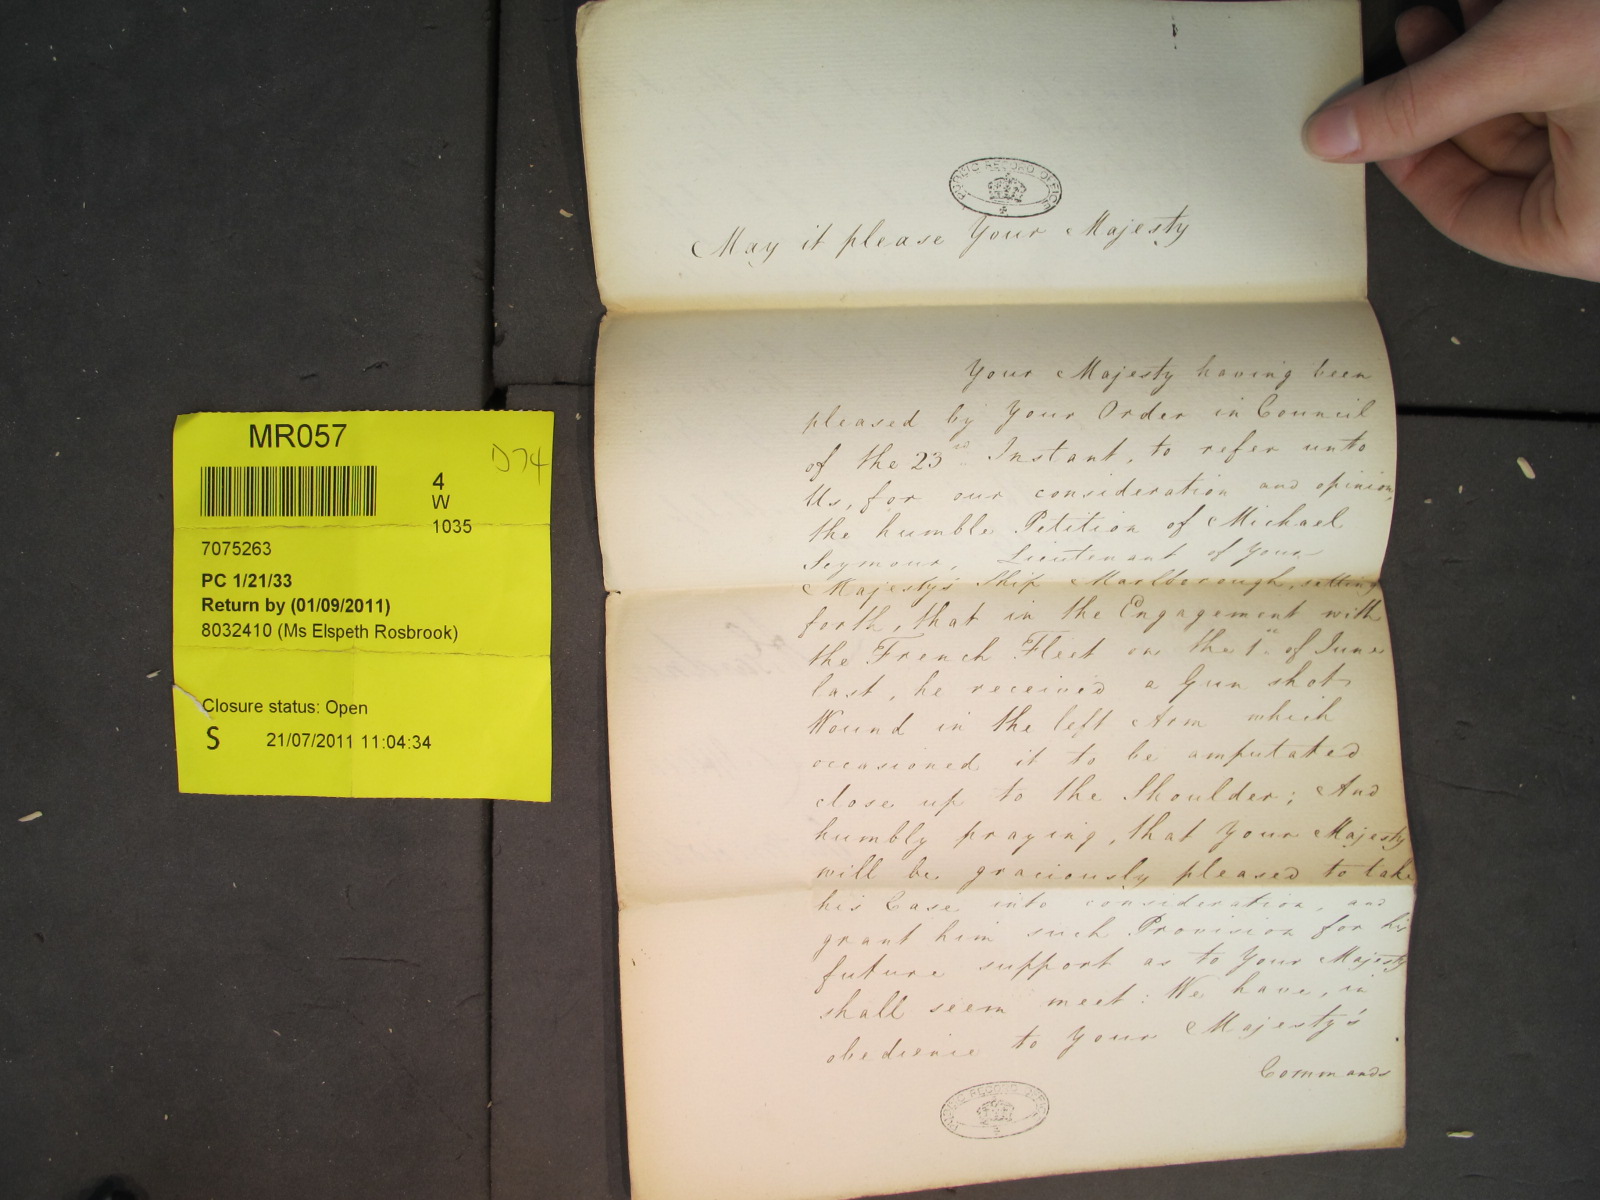 MR057
D74
4
W
1035
7075263
PC 1/21/33
Return by (01/09/2011)
8032410 (Ms Elspeth Rosbrook)
Closure status: Open
S 21/07/2011 11:04:34
PUBLIC RECORD OFFICE
May it please Your Majesty
Your Majesty having been
pleased by Your Order in Council
of the 23rd Instant, to refer unto
Us, for our consideration and opinion,
the humble Petition of Michael
Seymour, Lieutenant of Your
Majesty's Ship Marlborough, setting
forth, that in the Engagement with
the French Fleet on the 1st of June
last, he received a Gun shot
Wound in the left Arm which
occasioned it to be amputated
close up to the Shoulder; And
humbly praying, that Your Majesty
will be graciously pleased to take
his Case into consideration, and
grant him such Provision for his
future support as to Your Majesty
shall seem meet: We have, in
obedience to Your Majesty's
Commands
PUBLIC RECORD OFFICE